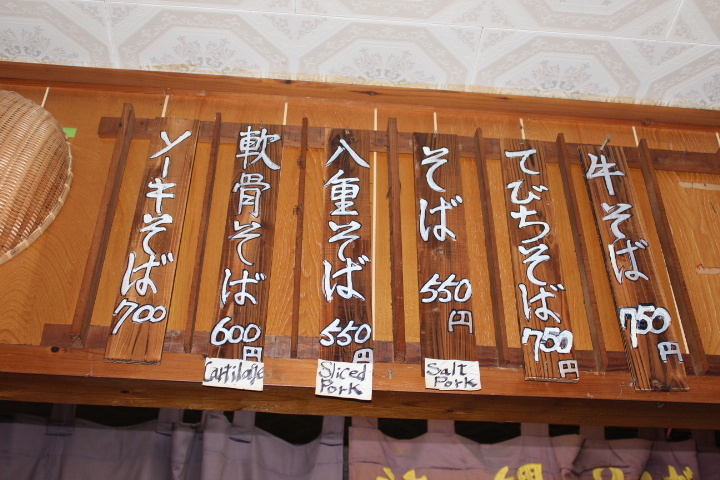 牛そば
750円
てびちそば
750円
そば
550円
Salt
Pork
八重そば
550円
Sliced
Pork
軟骨そば
600円
Cartilage
ソーキそば
700